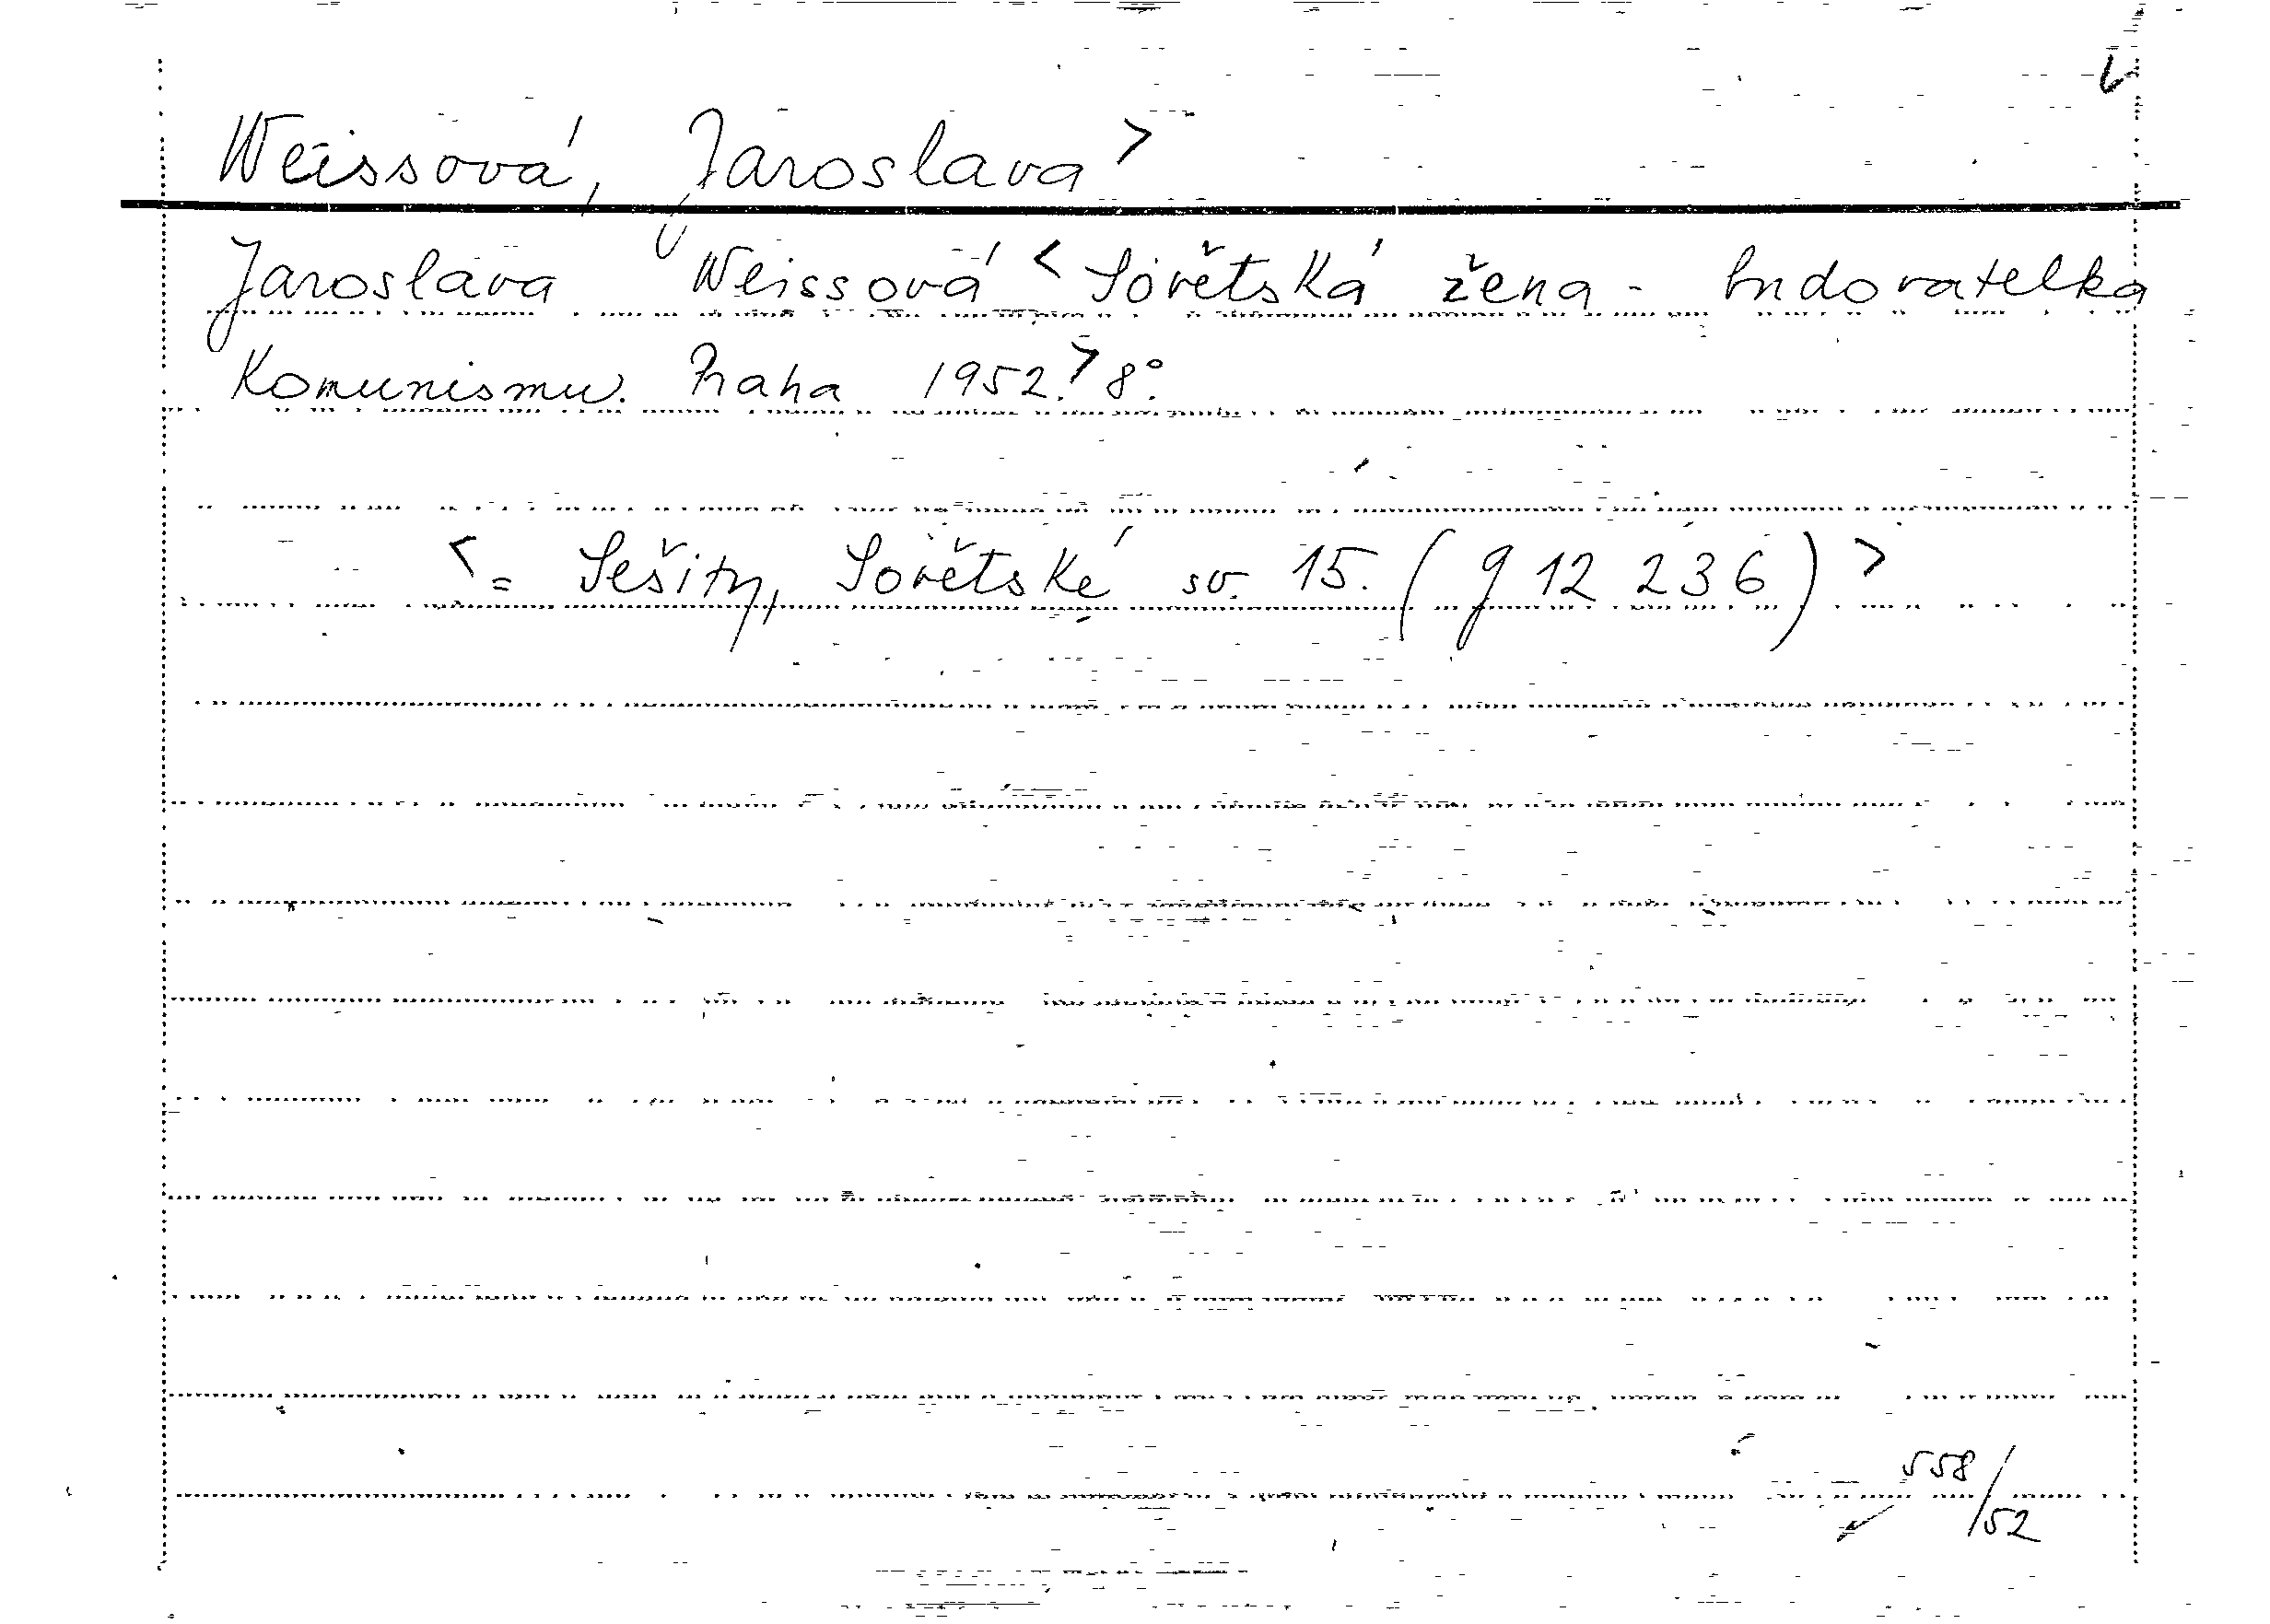 Weissová, Jaroslava>
Jaroslava Weissová < Sovětská žena - budovatelka
Komunismu. Praha 1952.> 8°.
<= Sešity, Sovětské sv. 15. (g 12 236)>
558/52